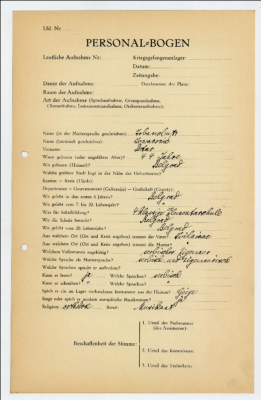 Lfd. Nr.
PERSONAL-BOGEN
Lautliche Aufnahme Nr: Kriegsgefangenenlager:
Datum:
Zeitangabe:
Dauer der Aufnahme: Durchmesser der Platte:
Raum der Aufnahme:
Art der Aufnahme (Sprechaufnahme, Gesangsaufnahme,
Choraufnahme, Instrumentenaufnahme, Orchesteraufnahme):
Name (in der Muttersprache geschrieben):
Name (lateinisch geschrieben):
Vorname:
Wann geboren (oder ungefähres Alter)? 44 Jahre
Wo geboren (Heimat)? Belgrad
Welche größere Stadt liegt in der Nähe des Geburtsortes?
Kanton – Kreis (Ujedz):
Departement – Gouvernement (Gubernija) – Grafschaft (County):
Wo gelebt in den ersten 6 Jahren? Belgrad
Wo gelebt vom 7. bis 20. Lebensjahr?
Was für Schulbildung? 4 Klassen Elementarschule
Wo die Schule besucht? Belgrad
Wo gelebt vom 20. Lebensjahr? Belgrad
Aus welchem Ort (Ort und Kreis angeben) stammt der Vater?
Aus welchem Ort (Ort und Kreis angeben) stammt die Mutter?
Welchem Volksstamm angehörig?
Welche Sprache als Muttersprache? serbisch und zigeunerisch
Welche Sprachen spricht er außerdem?
Kann er lesen? ja Welche Sprachen? serbisch
Kann er schreiben? Welche Sprachen?
Spielt er ein im Lager vorhandenes Instrument aus der Heimat? Geige
Singt oder spielt er moderne europäische Musikweisen?
Religion: Beruf: Musikant
Beschaffenheit der Stimme:
1. Urteil des Fachmannes
(des Assistenten):
2. Urteil des Kommissars:
3. Urteil des